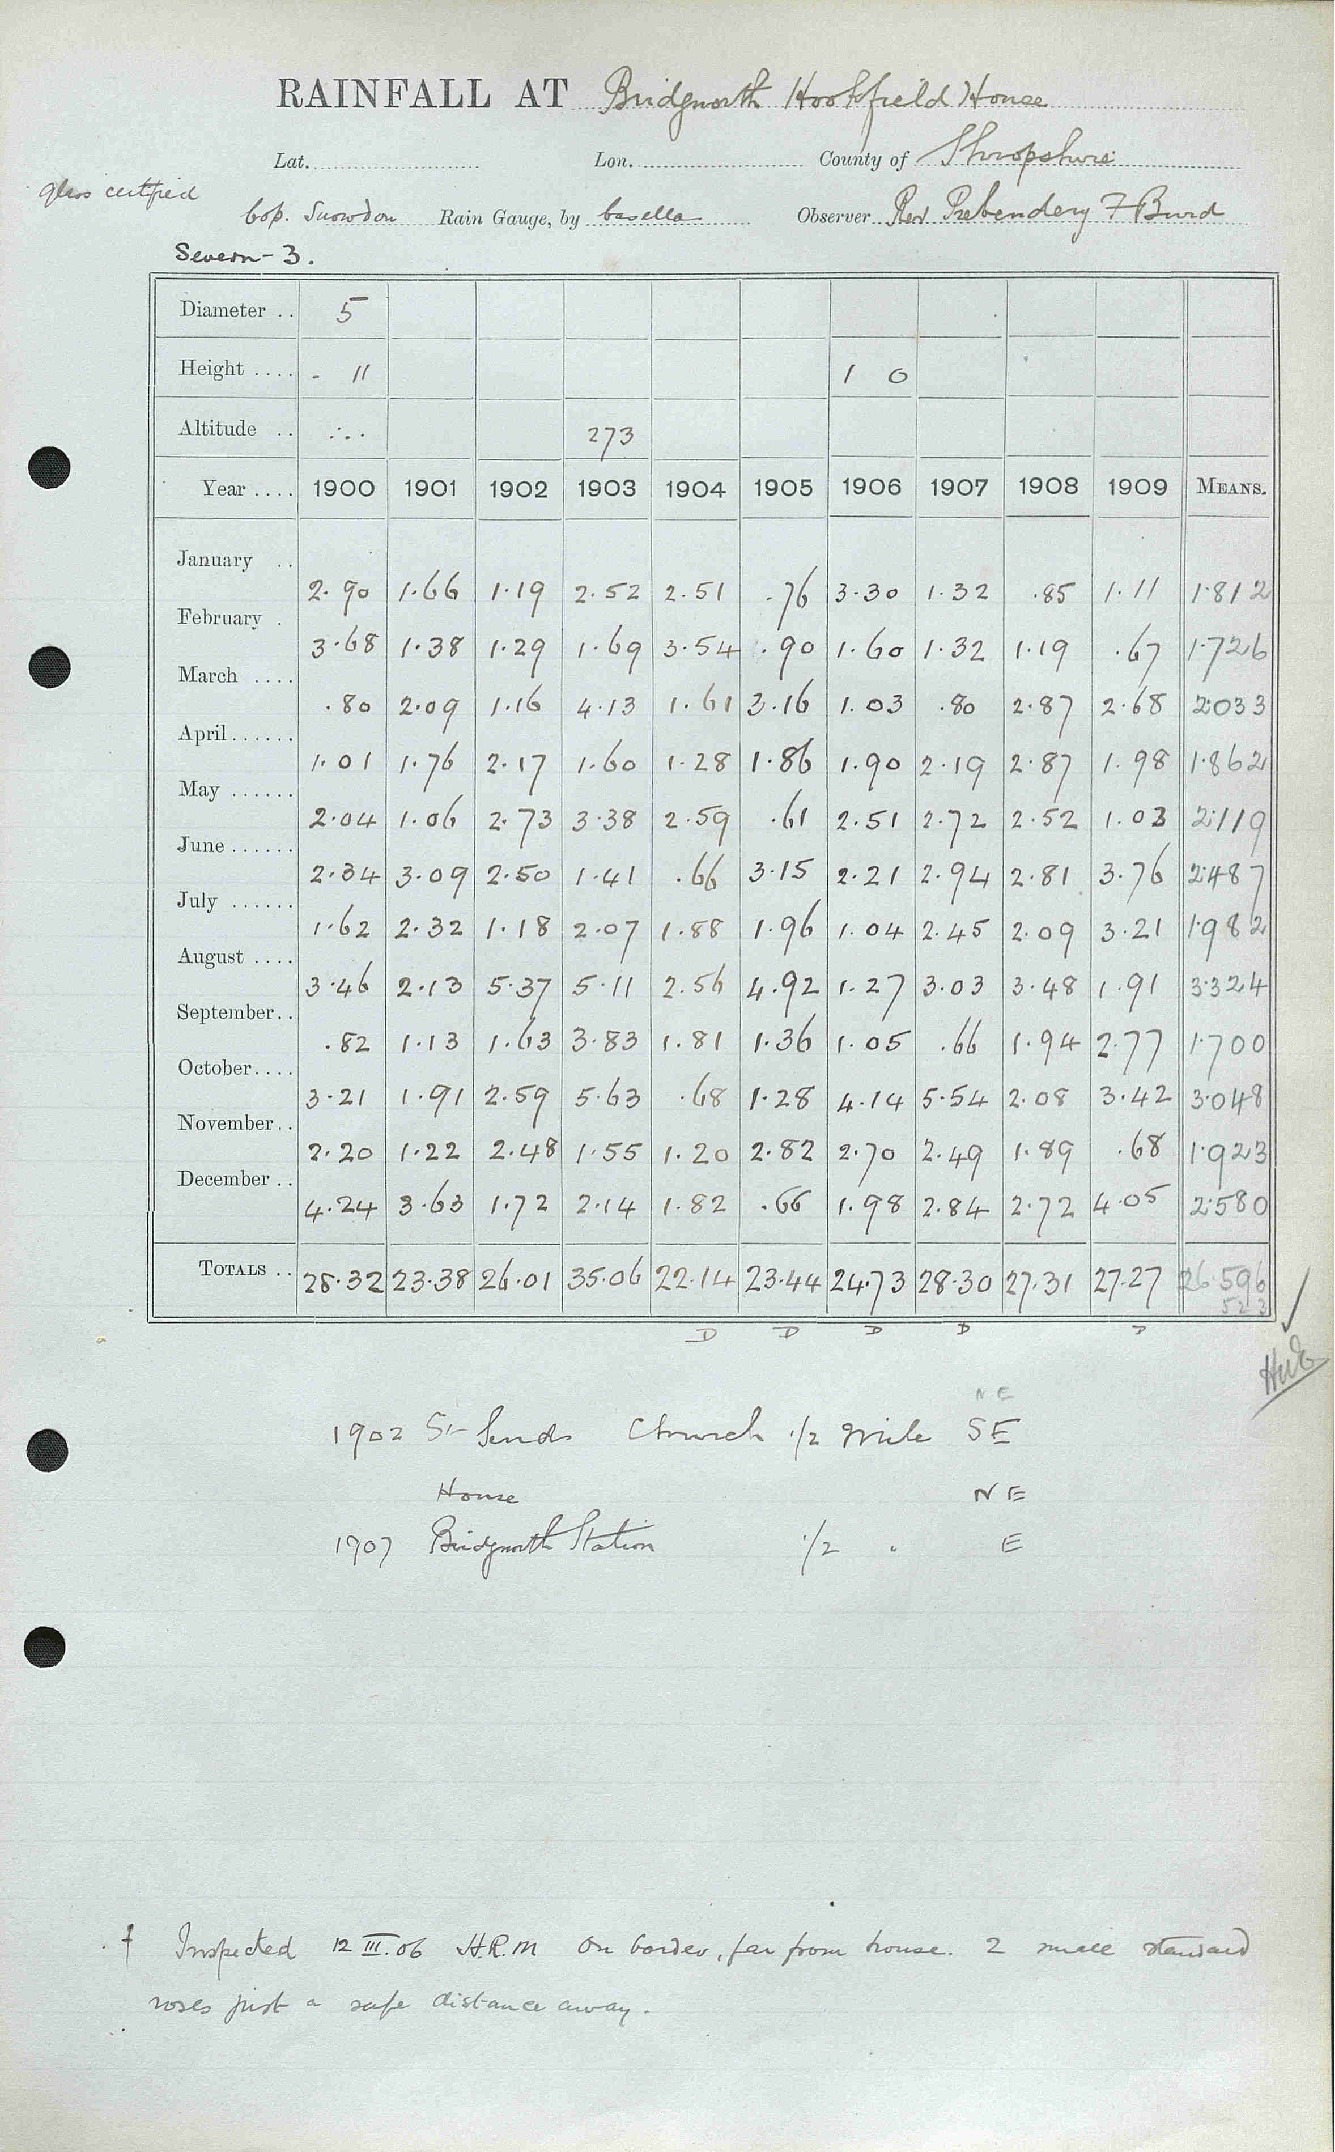 RAINFALL AT Bridgnorth Hookfield House
Lat. Lon. County of Shropshire
glass certified
Cop. Snowdon Rain Gauge, by Casella Observer Rev Prebendery F Burd
Severn - 3.
Diameter .. 5
Height .... - 11 1 0
Altitude .. ... 273
Year .... 1900 1901 1902 1903 1904 1905 1906 1907 1908 1909 MEANS.
January .. 2.90 1.66 1.19 2.52 2.51 .76 3.30 1.32 .85 1.11 1.812
February . 3.68 1.38 1.29 1.69 3.54 .90 1.60 1.32 1.19 .67 1.726
March .... .80 2.09 1.16 4.13 1.61 3.16 1.03 .80 2.87 2.68 2.033
April...... 1.01 1.76 2.17 1.60 1.28 1.86 1.90 2.19 2.87 1.98 1.862
May ...... 2.04 1.06 2.73 3.38 2.59 .61 2.51 2.72 2.52 1.03 2.119
June ...... 2.34 3.09 2.50 1.41 .66 3.15 2.21 2.94 2.81 3.76 2.487
July ...... 1.62 2.32 1.18 2.07 1.88 1.96 1.04 2.45 2.09 3.21 1.982
August .... 3.46 2.13 5.37 5.11 2.56 4.92 1.27 3.03 3.48 1.91 3.324
September.. .82 1.13 1.63 3.83 1.81 1.36 1.05 .66 1.94 2.77 1.700
October.... 3.21 1.91 2.59 5.63 .68 1.28 4.14 5.54 2.08 3.42 3.048
November.. 2.20 1.22 2.48 1.55 1.20 2.82 2.70 2.49 1.89 .68 1.923
December .. 4.24 3.63 1.72 2.14 1.82 .66 1.98 2.84 2.72 4.05 2.580
TOTALS .. 28.32 23.38 26.01 35.06 22.14 23.44 24.73 28.30 27.31 27.27 26.596
523
D D D D D
NE
1902 St Church 1/2 Mile SE
House NE
1907 Bridgnorth Station 1/2 " E
† Inspected 12 III.06 H.R.M On border, far from house. 2 standard
roses just a safe distance away.